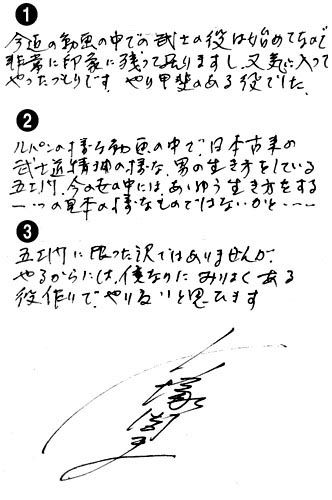 1
今迄の動画の中での武士の役は始めてなので
非常に印象に残って居りますし、又気に入って
やったつもりです。やり甲斐のある役でした。
2
ルパンの様な動画の中で、日本古来の
武士道精神の様な、男の生き方をしている
五ェ門、今の世の中には、あゝゆう生き方をする
一つの見本の様なものではないかと……
3
五ェ門に限った訳ではありませんが、
やるからには、僕なりにみりょくある
役作りで、やり度いと思ひます